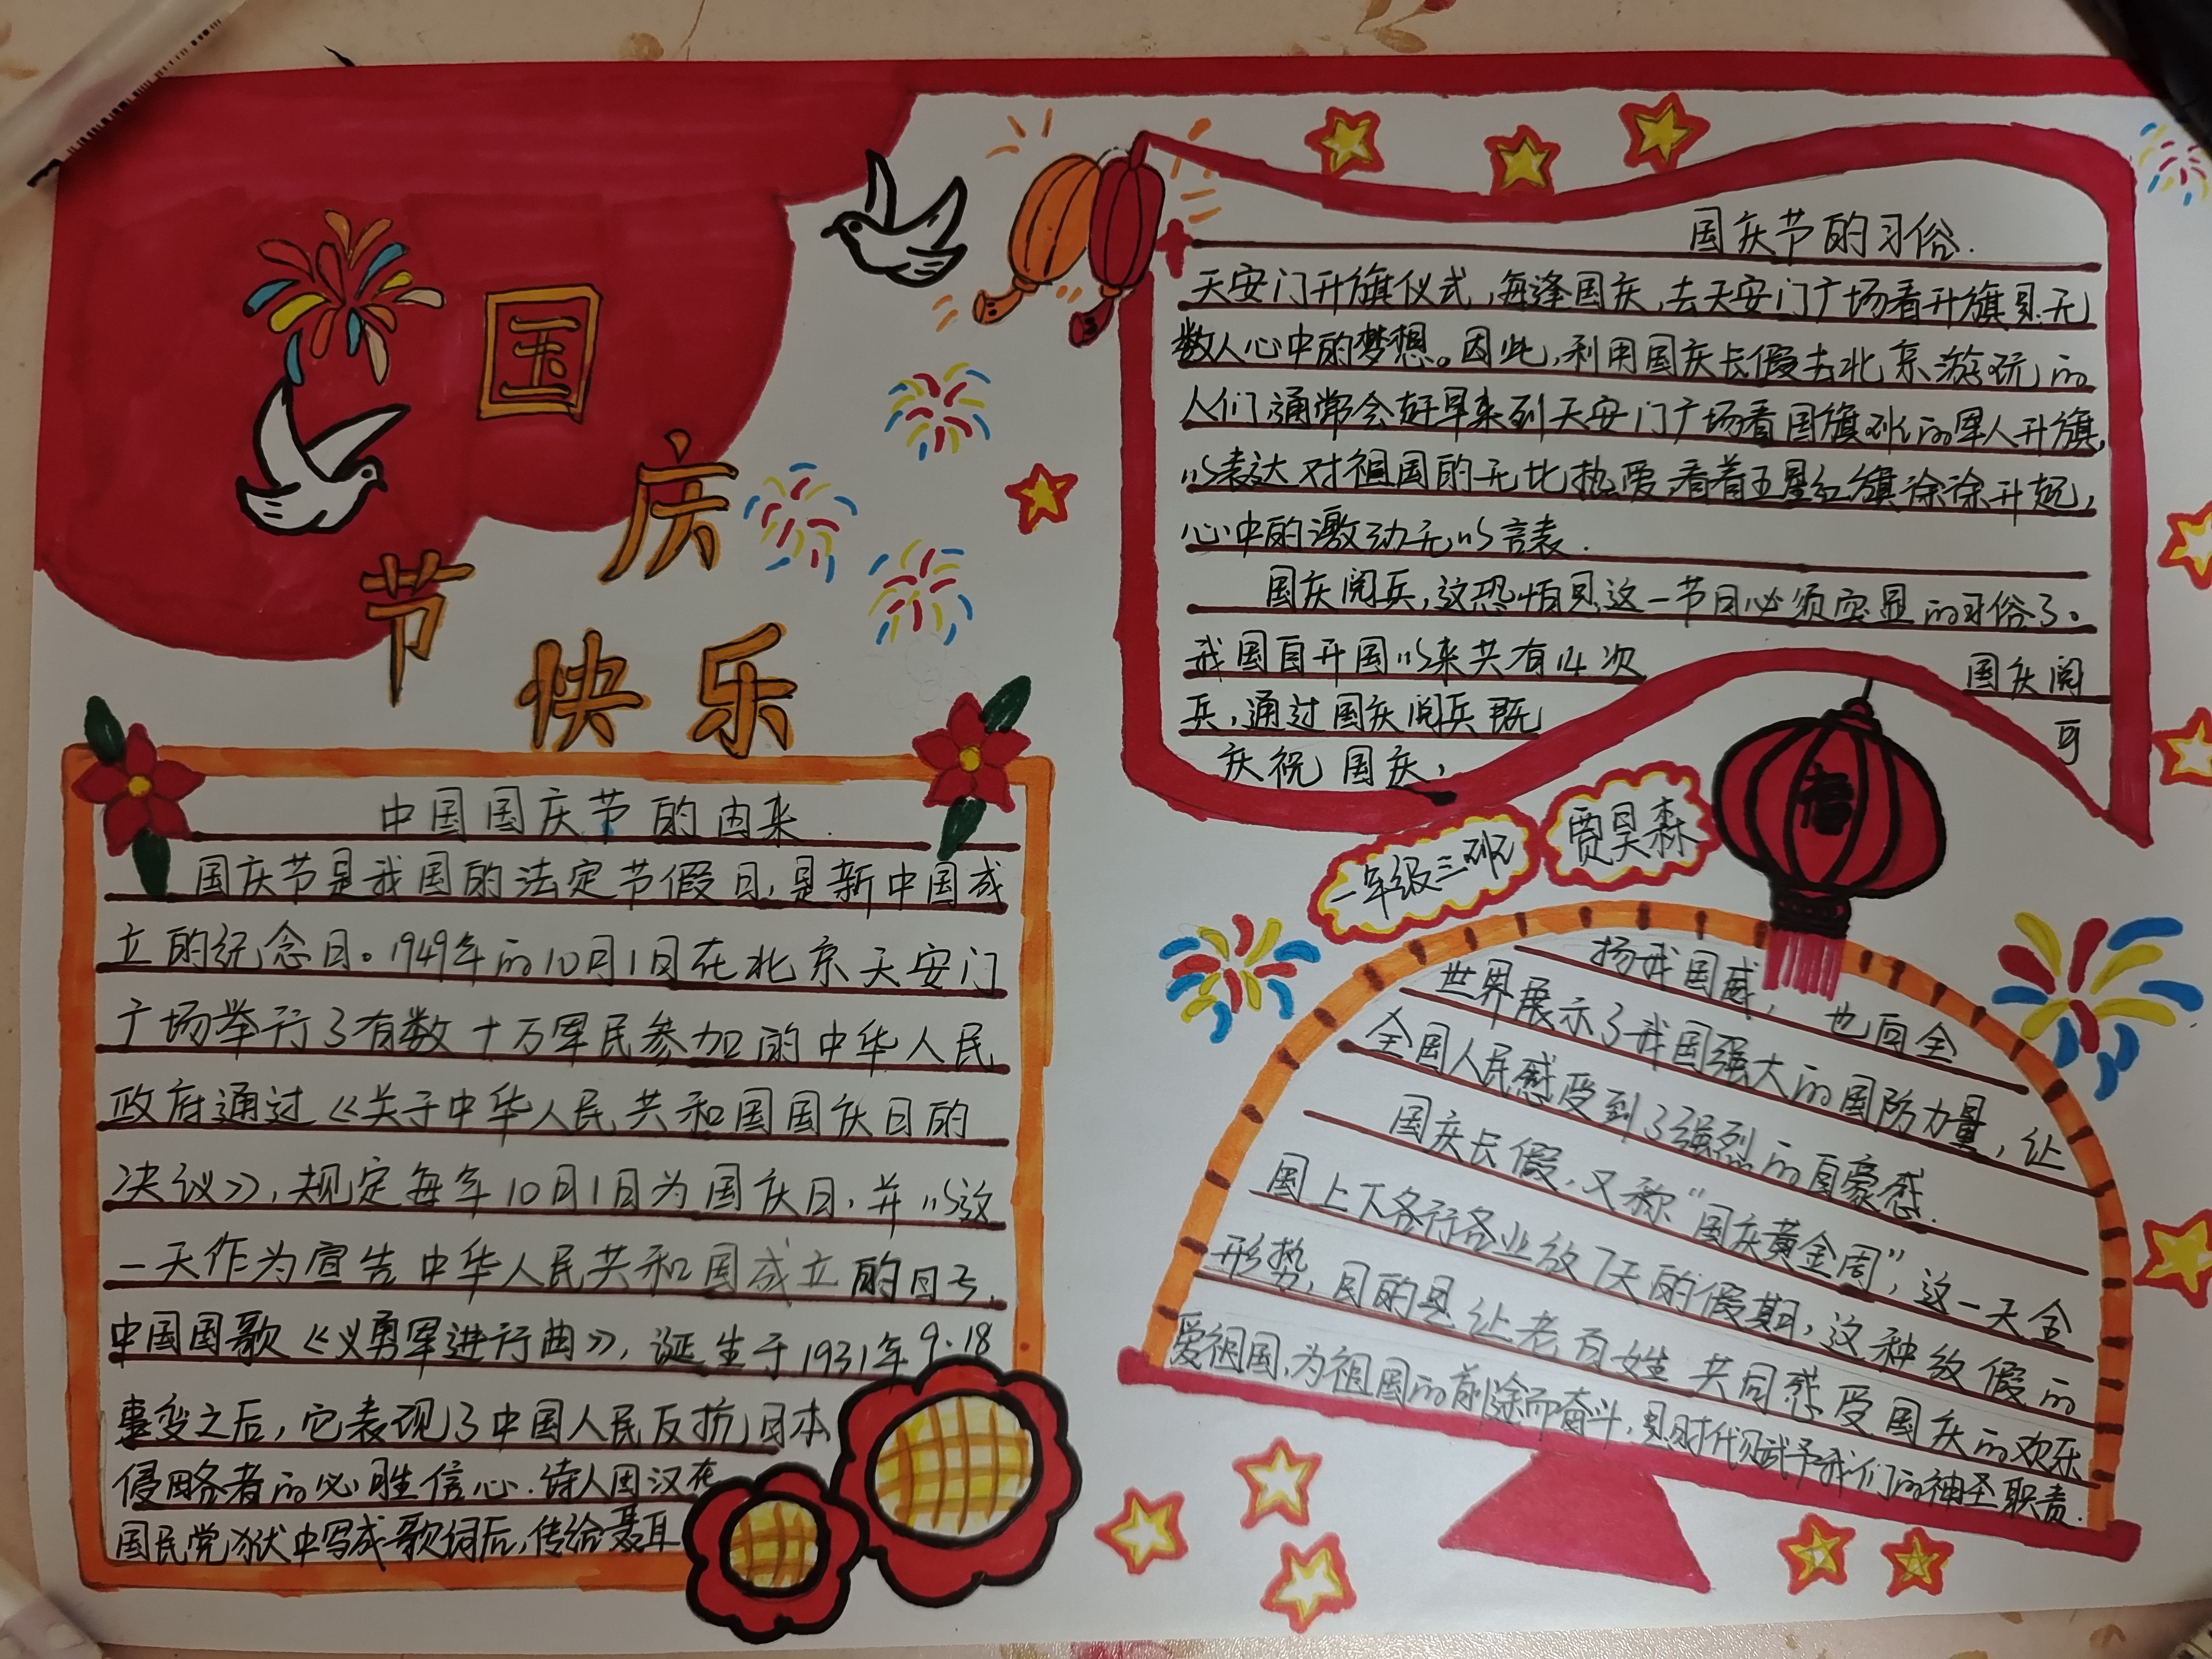 国
庆
节
快乐
中国国庆节的由来.
国庆节是我国的法定节假日,是新中国成
立的纪念日。1949年的10月1日在北京天安门
广场举行了有数十万军民参加的中华人民
政府通过《关于中华人民共和国国庆日的
决议》,规定每年10月1日为国庆日,并以这
一天作为宣告中华人民共和国成立的日子.
中国国歌《义勇军进行曲》,诞生于1931年9·18
事变之后,它表现了中国人民反抗日本
侵略者的必胜信心.诗人田汉在
国民党狱中写成歌词后,传给聂耳
国庆节的习俗.
天安门升旗仪式,每逢国庆,去天安门广场看升旗是无
数人心中的梦想。因此,利用国庆长假去北京游玩的
人们通常会赶早来到天安门广场看国旗班的军人升旗,
以表达对祖国的无比热爱,看着五星红旗徐徐升起,
心中的激动无以言表.
国庆阅兵,这恐怕是这一节日必须突显的习俗了。
我国自开国以来共有14次 国庆阅
兵,通过国庆阅兵既 可
庆祝国庆,
一年级三班
贾昊森
扬我国威, 也向全
世界展示了我国强大的国防力量,让
全国人民感受到了强烈的自豪感.
国庆长假,又称“国庆黄金周”,这一天全
国上下各行各业放7天的假期,这种放假的
形势,目的是让老百姓共同感受国庆的欢乐
爱祖国,为祖国的前途而奋斗,是时代赋予我们的神圣职责.